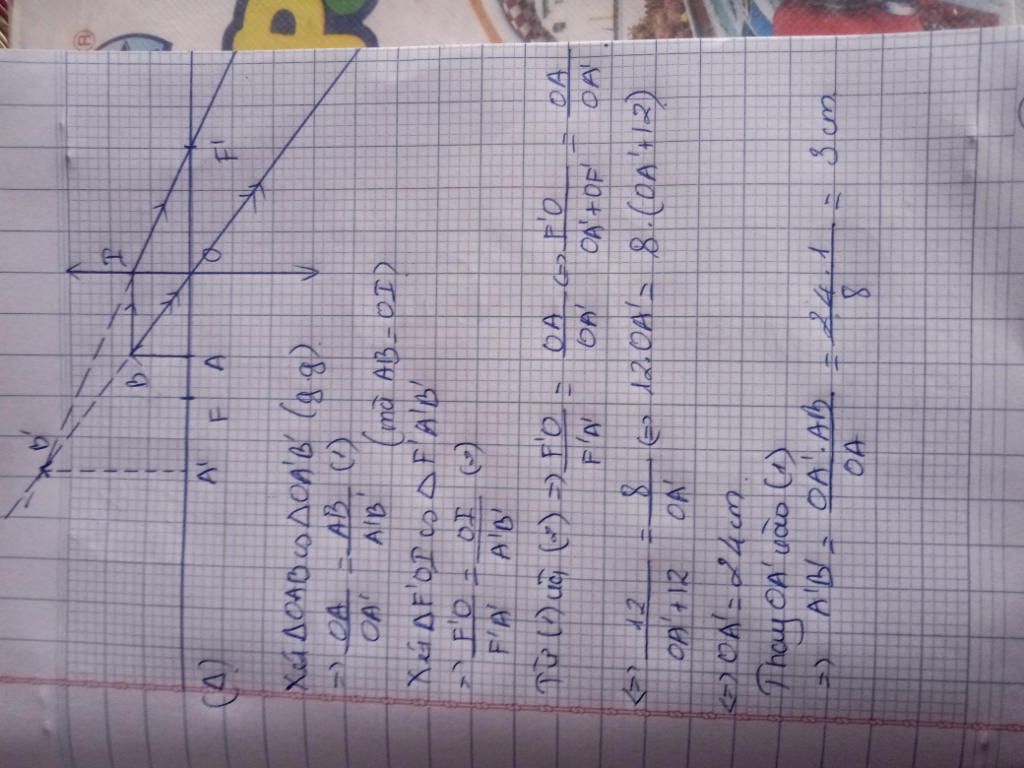 B'
B
I
A'
F
A
O
F'
(Δ)
Xét ΔOAB ∽ ΔOA'B' (g.g)
=> OA/OA' = AB/A'B' (1)
(mà AB = OI)
Xét ΔF'OI ∽ ΔF'A'B'
=> F'O/F'A' = OI/A'B' (2)
Từ (1) và (2) => F'O/F'A' = OA/OA' <=> F'O/OA'+OF' = OA/OA'
<=> 12/OA'+12 = 8/OA' <=> 12.OA' = 8.(OA'+12)
<=> OA' = 24cm
Thay OA' vào (1)
=> A'B' = OA'.AB/OA = 24.1/8 = 3cm
®